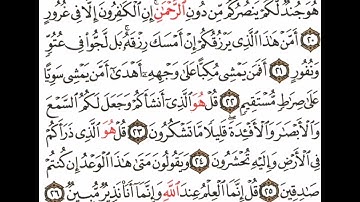 هُوَ جُندٌ لَّكُمْ يَنصُرُكُم مِّن دُونِ ٱلرَّحْمَـٰنِ ۚ إِنِ ٱلْكَـٰفِرُونَ إِلَّا فِى غُرُورٍ
٢٠ أَمَّنْ هَـٰذَا ٱلَّذِى يَرْزُقُكُمْ إِنْ أَمْسَكَ رِزْقَهُۥ ۚ بَل لَّجُّوا۟ فِى عُتُوٍّ
وَنُفُورٍ ٢١ أَفَمَن يَمْشِى مُكِبًّا عَلَىٰ وَجْهِهِۦٓ أَهْدَىٰٓ أَمَّن يَمْشِى سَوِيًّا
عَلَىٰ صِرَٰطٍ مُّسْتَقِيمٍ ٢٢ قُلْ هُوَ ٱلَّذِىٓ أَنشَأَكُمْ وَجَعَلَ لَكُمُ ٱلسَّمْعَ
وَٱلْأَبْصَـٰرَ وَٱلْأَفْـِٔدَةَ ۖ قَلِيلًا مَّا تَشْكُرُونَ ٢٣ قُلْ هُوَ ٱلَّذِى ذَرَأَكُمْ
فِى ٱلْأَرْضِ وَإِلَيْهِ تُحْشَرُونَ ٢٤ وَيَقُولُونَ مَتَىٰ هَـٰذَا ٱلْوَعْدُ إِن كُنتُمْ
صَـٰدِقِينَ ٢٥ قُلْ إِنَّمَا ٱلْعِلْمُ عِندَ ٱللَّهِ وَإِنَّمَآ أَنَا۠ نَذِيرٌ مُّبِينٌ ٢٦